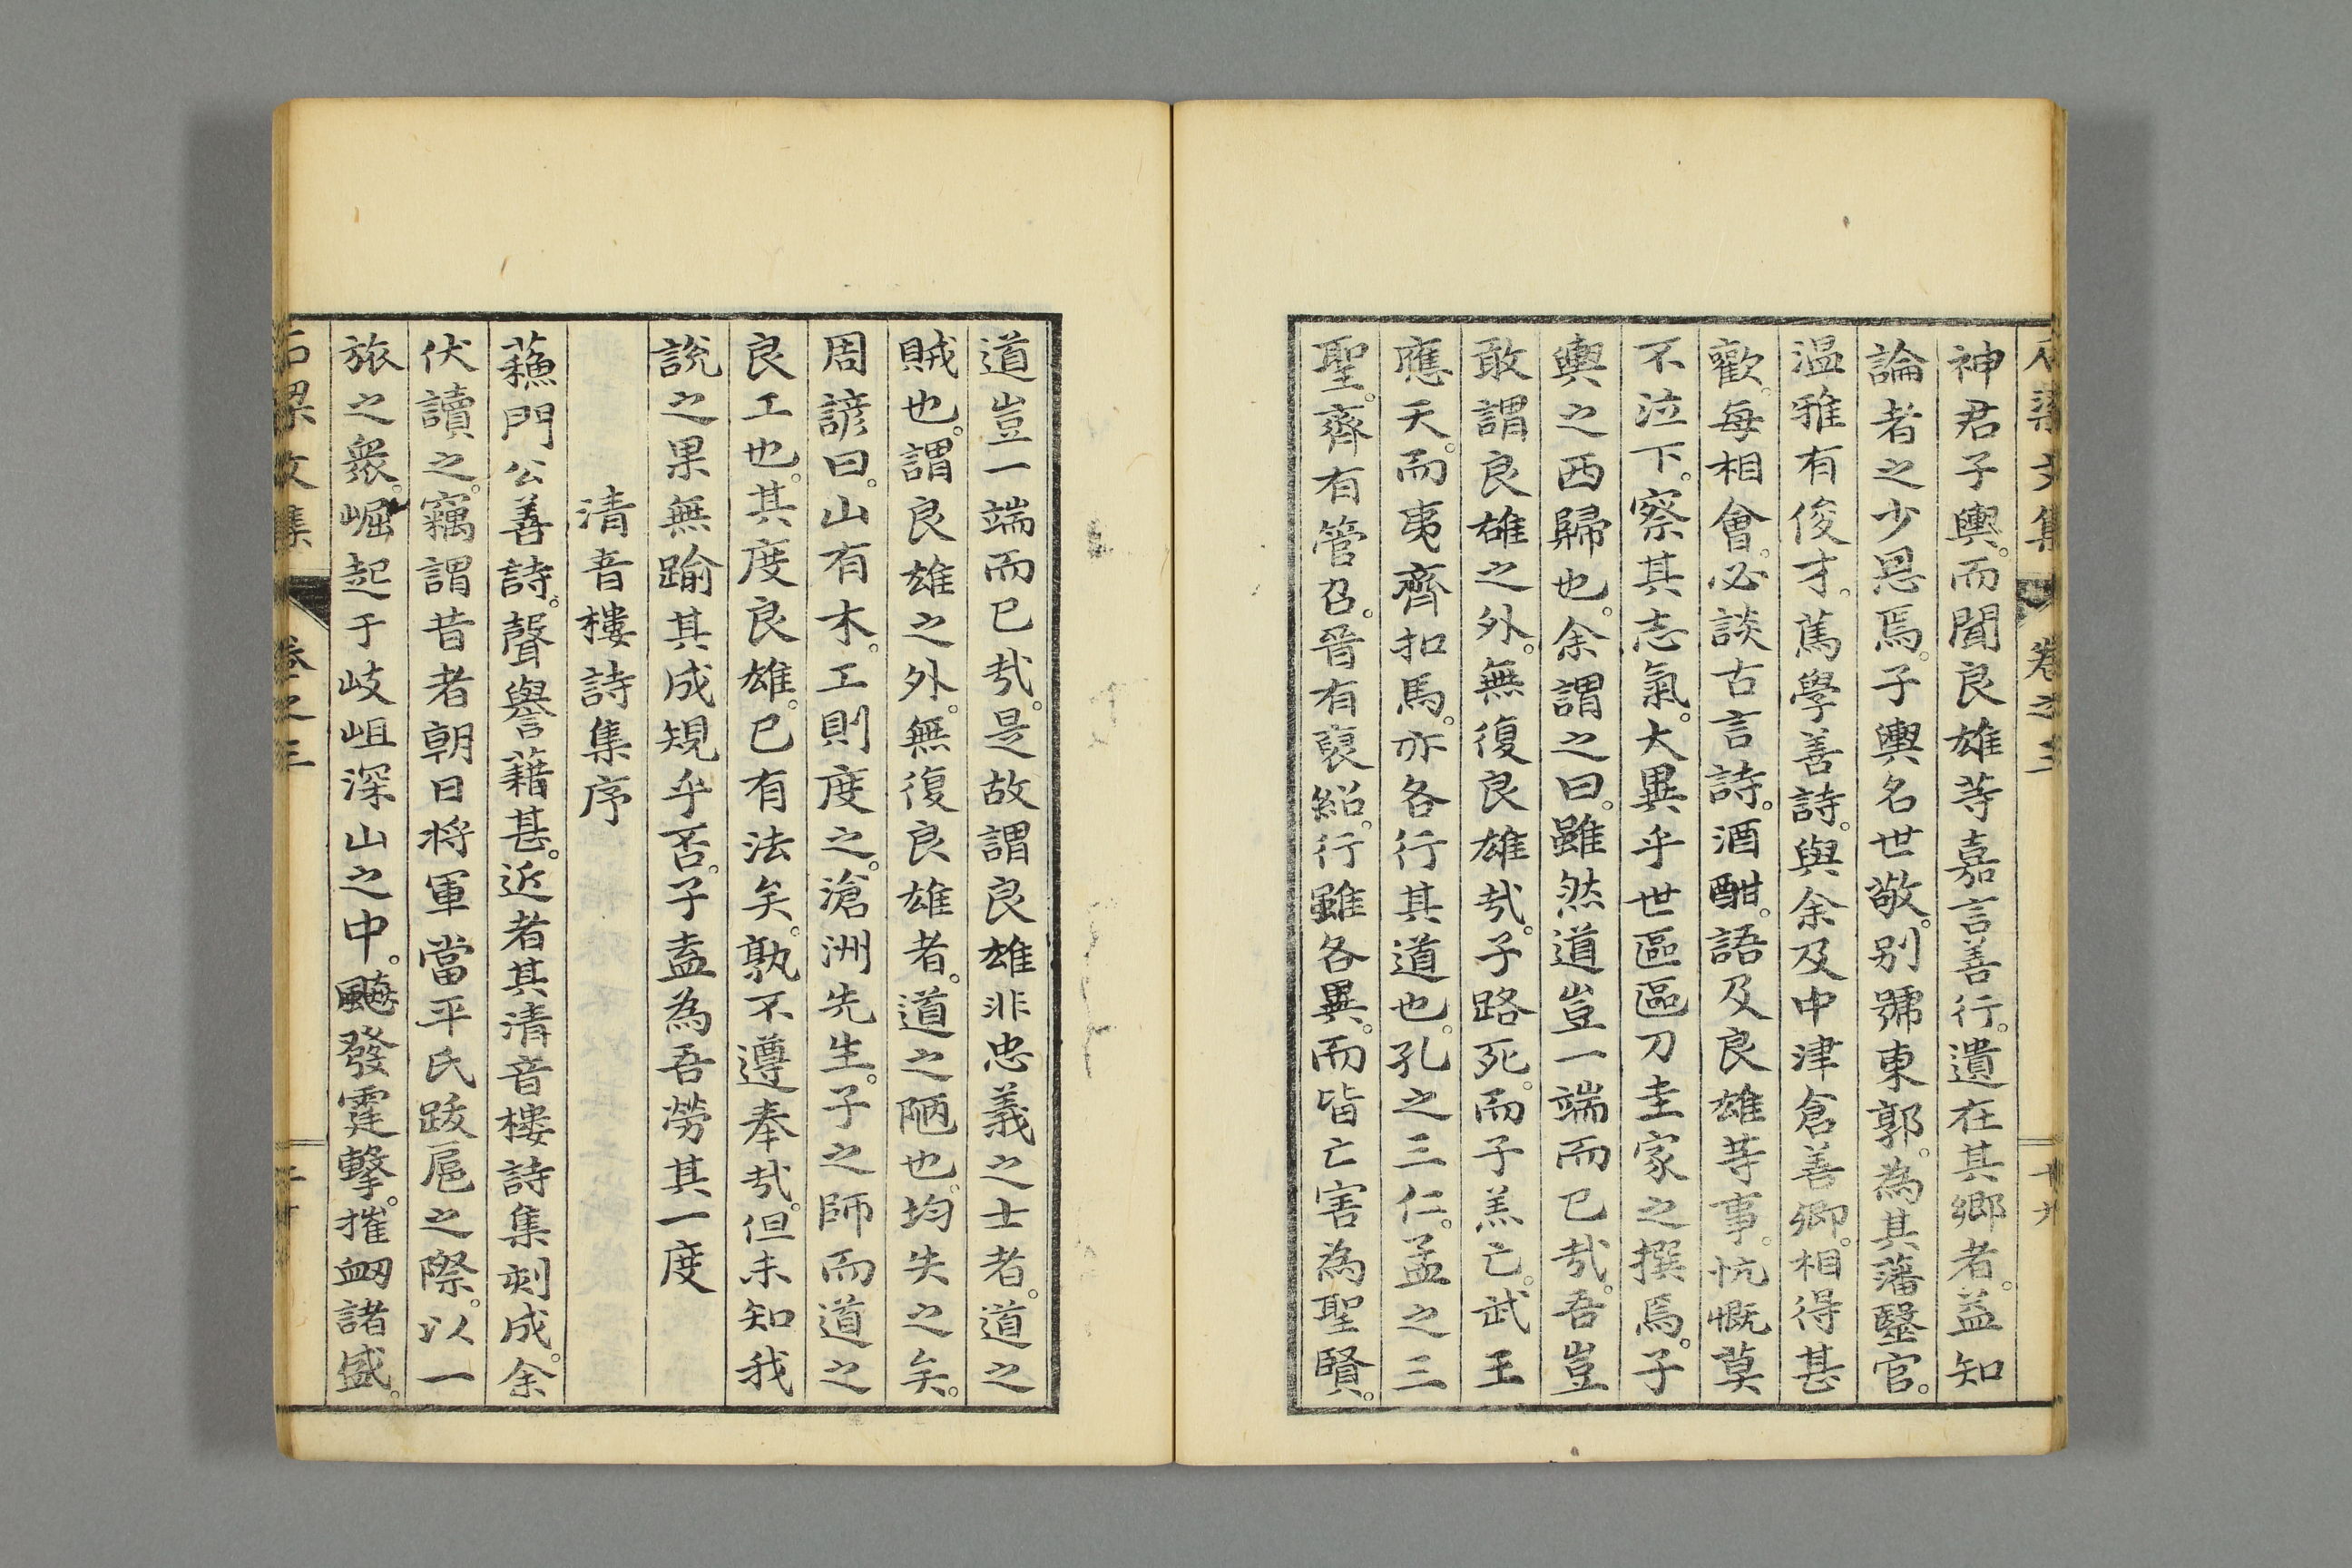 石梁文集 卷之三 十九
神君子輿。而聞良雄䒭嘉言善行。遺在其鄉者。益知
論者之少恩焉。子輿名世敬。别號東郭。為其藩毉官。
温雅有俊才。篤學善詩。與余及中津倉善卿。相得甚
歡。每相會。必談古言詩。酒酣。語及良雄䒭事。忼慨莫
不泣下。察其志氣。大異乎世區區刀圭家之撰焉。子
輿之西歸也。余謂之曰。雖然道豈一端而已㢤。吾豈
敢謂良雄之外。無復良雄㢤。子路死。而子羔亡。武王
應天。而夷齊扣馬。亦各行其道也。孔之三仁。孟之三
聖。齊有管召。晉有裒紹。行雖各異。而皆亡害為聖賢。
道豈一端而已㢤。是故謂良雄非忠義之士者。道之
賊也。謂良雄之外。無復良雄者。道之陋也。均失之矣。
周諺曰。山有木。工則度之。滄洲先生。子之師而道之
良工也。其度良雄。已有法矣。孰不遵奉㢤。但未知我
說之果無踰其成規乎否。子盍為吾勞其一度
清音樓詩集序
蘓門公善詩。聲譽藉甚。近者其清音樓詩集刻成。余
伏讀之。竊謂昔者朝日将軍當平氏跋扈之際。以一
旅之衆。崛起于岐岨深山之中。飈發霆擊。摧衂諸盛。
石梁文集 卷之三